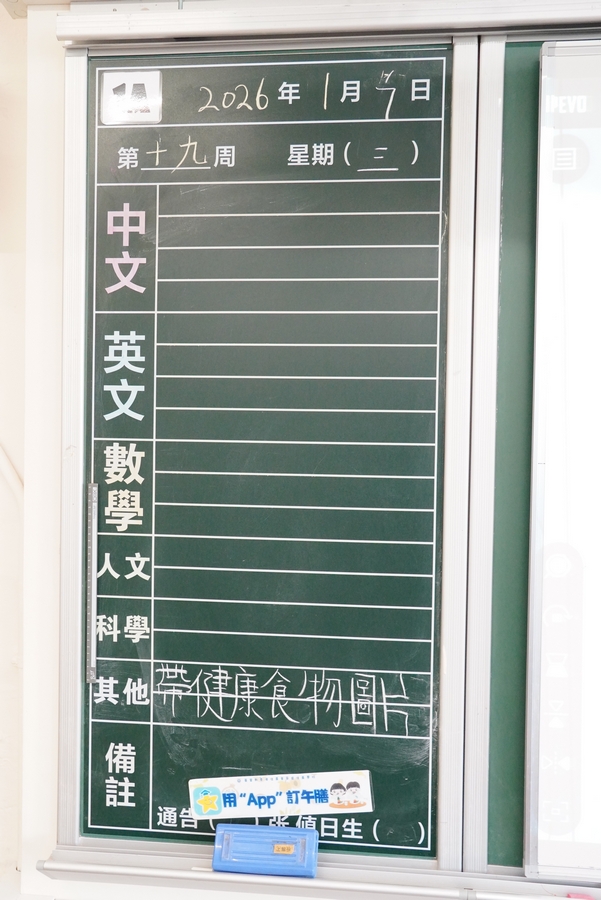 1A
2026年1月7日
第十九周 星期(三)
中文
英文
數學
人文
科學
其他 帶健康食物圖片
備註
用"App"訂午膳
通告( )張 值日生( )
IPEVO